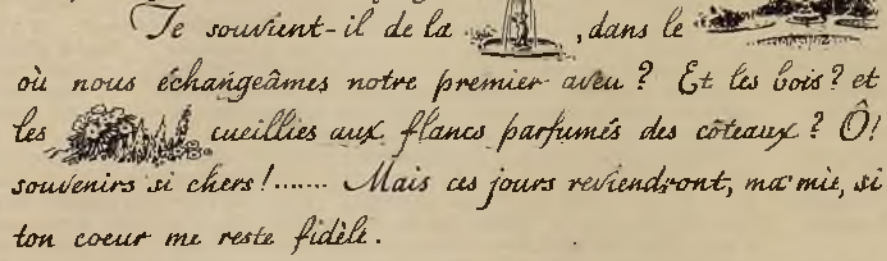 Te souvient-il de la , dans le
où nous échangeâmes notre premier aveu ? Et les bois ? et
les cueillies aux flancs parfumés des côteaux ? Ô !
souvenirs si chers ! ....... Mais ces jours reviendront, ma mie, si
ton coeur me reste fidèle .